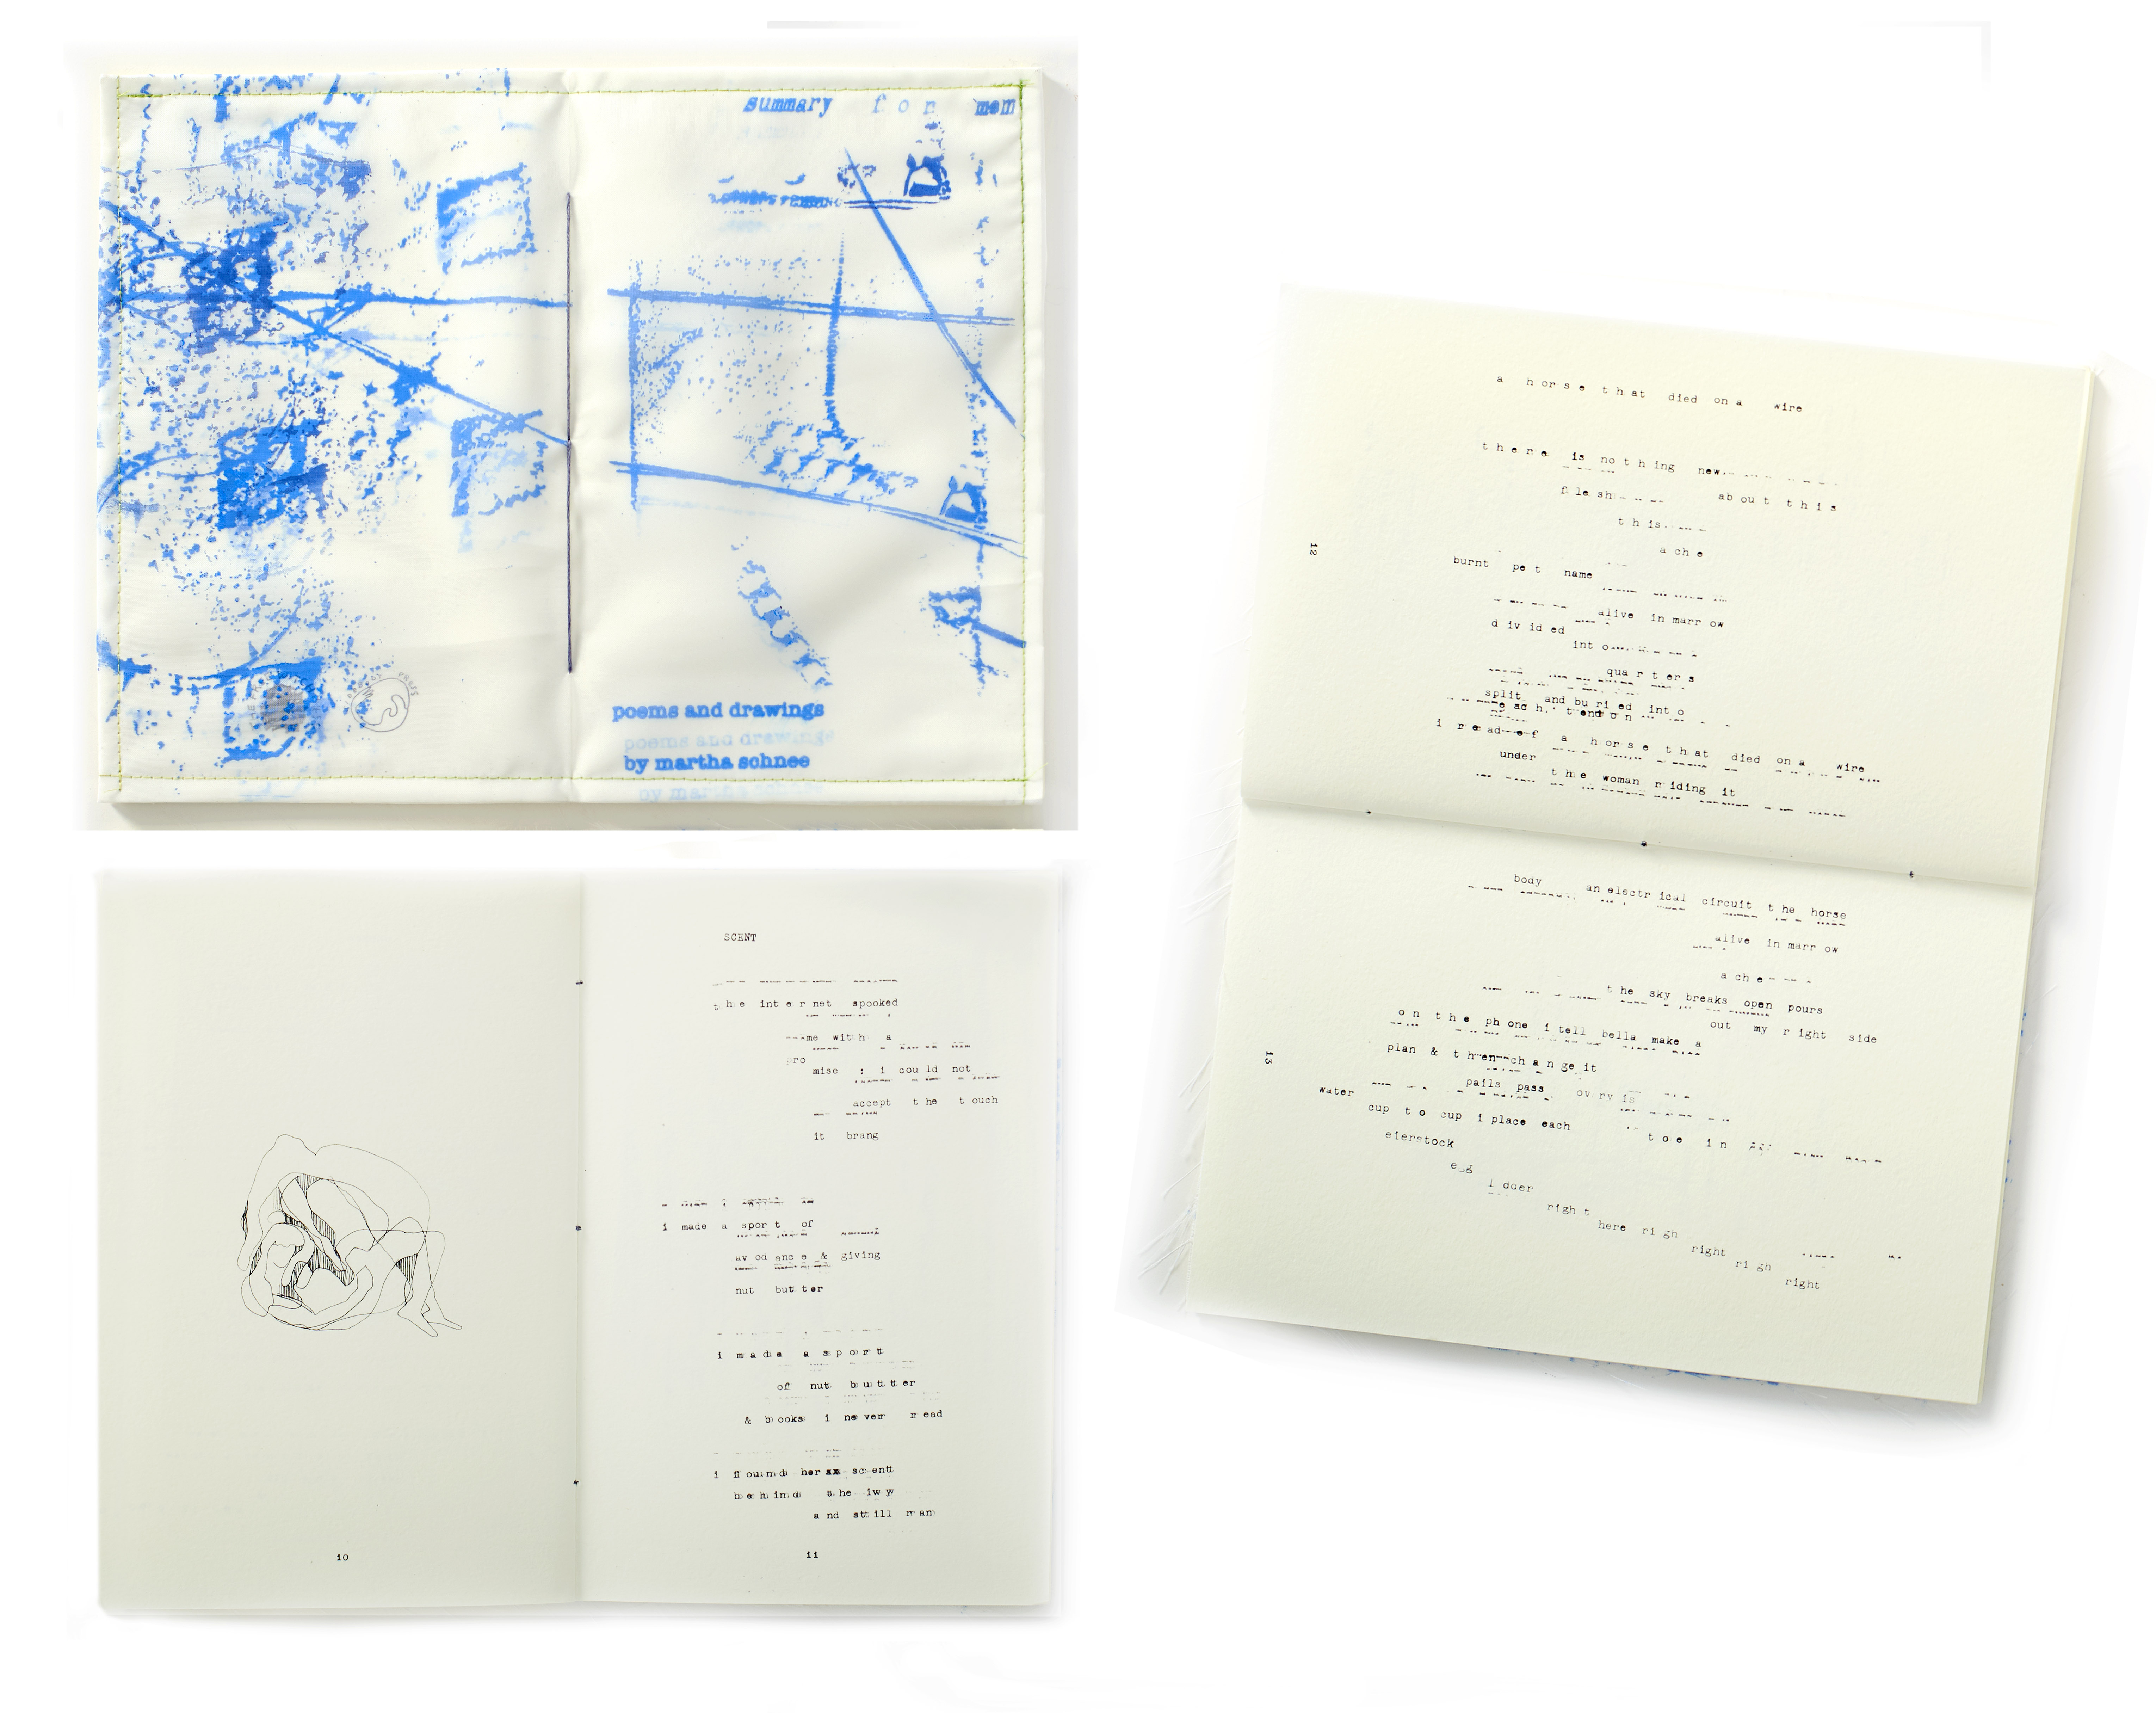 summary for mem
poems and drawings
poems and drawings
by martha schnee
by martha schnee
SCENT
the internet spooked
me with a
pro
mise : i could not
accept the touch
it brang
i made a sport of
avodance & giving
nut butter
i made a sport
of nut buttter
& books i never read
i found her scent
behind the ivy
and still man
10
11
a horse that died on a wire
there is nothing new
flesh about this
this
ache
burnt pet name
alive in marrow
divided
into
quarters
split and buried into
each tendon
i read of a horse that died on a wire
under the woman riding it
12
body an electrical circuit the horse
alive in marrow
ache
the sky breaks open pours
out my right side
on the phone i tell bella make a
plan & then change it
pails pass ovry is
water
cup to cup i place each toe in
eierstock
egg
right
here righ
right
righ
right
13